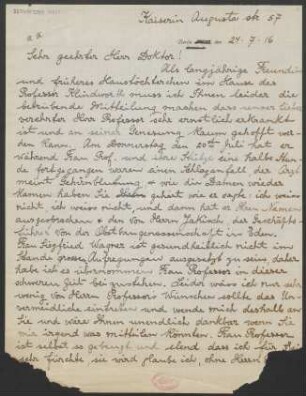 Kaiserin Augusta str. 57
24-7-16
Sehr geehrter Herr Doktor!
Als langjährige Freundin
und früheres Haustöchterchen im Hause des
Professor Klindworth muss ich Ihnen leider die
betrübende Mitteilung machen dass unser lieber
verehrter Herr Professor sehr ernstlich erkrankt
ist und an seiner Genesung kaum gehofft wer-
den kann. Am Donnerstag den 20ten Juli hat er
während Frau Prof. und ihre Stütze eine halbe Stunde
fortgegangen waren einen Schlaganfall der Arzt
meint Gehirnblutung; wie die Damen wieder
kamen haben Sie gehört wie er sagte: ich weiss
nicht, ich weiss nicht, und dann hat er Ihren Namen
ausgesprochen & den von Herrn Jackisch der Geschäfts-
führer von der Obstbaugenossenschaft in Eden.
Frau Siegfried Wagner ist gesundheitlich nicht im
Stande grosse Aufregungen ausgesetzt zu sein, daher
habe ich es übernommen Frau Professor in dieser
schweren Zeit beizustehen. Leider weiss ich nur sehr
wenig von Herrn Professors Wünschen sollte das Un-
vermeidliche eintreten und wende mich deshalb an
Sie und wäre Ihnen unendlich dankbar wenn Sie
mir irgend was mitteilen könnten. Frau Professor
ist selbst so gebeugt und elend, dass ich für sie
sehr fürchte sie wird glaube ich, ohne Herrn